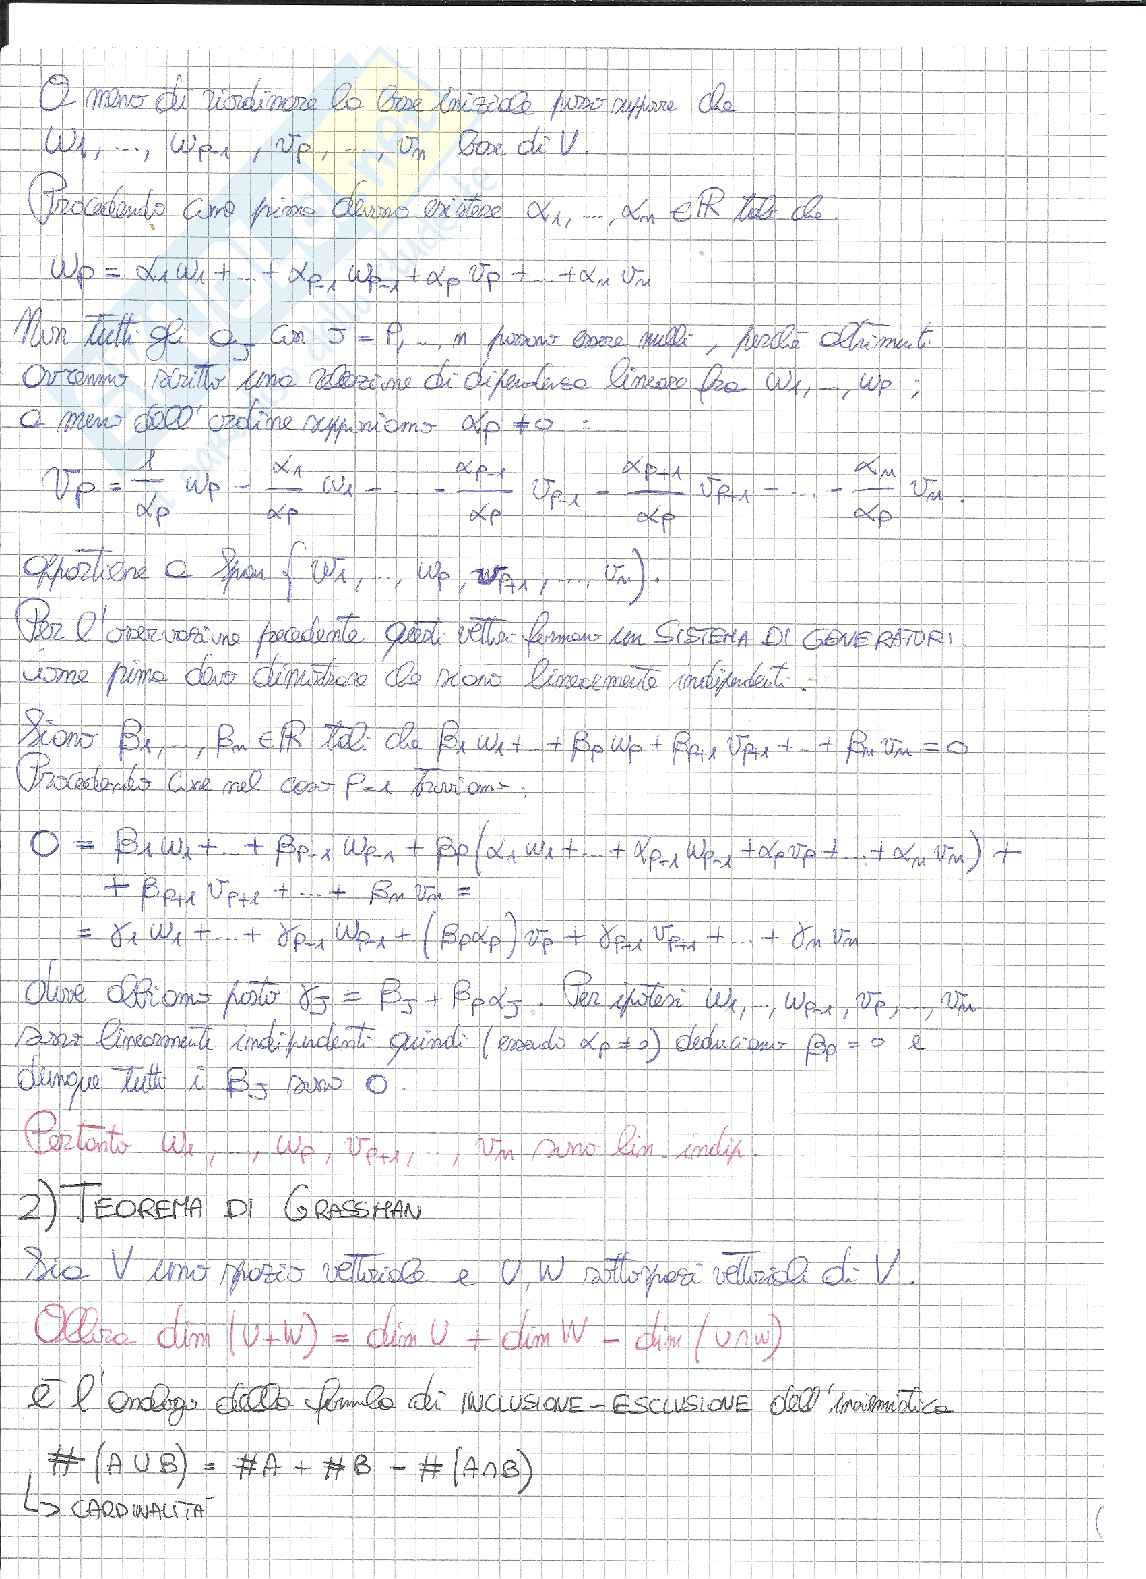 A meno di riordinare la base iniziale posso supporre che
w1, ..., wp-1, vp, ..., vn base di V.
Procedendo come prima devono esistere α1, ..., αn ∈ ℝ tali che
wp = α1 w1 + ... + αp-1 wp-1 + αp vp + ... + αn vn
Non tutti gli aJ con J = P, ..., n possono essere nulli, perché altrimenti
avremmo scritto una relazione di dipendenza lineare fra w1, ..., wp ;
a meno dell'ordine supponiamo αp ≠ 0 :
vp = 1/αp wp - α1/αp w1 - ... - αp-1/αp vp-1 - αp+1/αp vp+1 - ... - αn/αp vn .
appartiene a Span { w1, ..., wp, vp+1, ..., vn ) .
Per l'osservazione precedente questi vettori formano un SISTEMA DI GENERATORI.
come prima devo dimostrare che siano linearmente indipendenti.
Siano β1, ..., βn ∈ ℝ tali che β1 w1 + ... + βp wp + βp+1 vp+1 + ... + βn vn = 0
Procedendo come nel caso p-1 troviamo:
0 = β1 w1 + ... + βp-1 wp-1 + βp (α1 w1 + ... + αp-1 wp-1 + αp vp + ... + αn vn) +
+ βp+1 vp+1 + ... + βn vn =
= γ1 w1 + ... + γp-1 wp-1 + (βp αp) vp + γp+1 vp+1 + ... + γn vn
dove abbiamo posto γJ = βJ + βp αJ . Per ipotesi w1, ..., wp-1, vp, ..., vn
sono linearmente indipendenti quindi (essendo αp ≠ 0) deduciamo βp = 0 e
dunque tutti i βJ sono 0.
Pertanto w1, ..., wp, vp+1, ..., vn sono lin. indip.
2) TEOREMA DI GRASSMAN
Sia V uno spazio vettoriale e U, W sottospazi vettoriali di V.
Allora dim (U+W) = dim U + dim W - dim (U∩W)
è l'analogo della formula di INCLUSIONE-ESCLUSIONE dell'insiemistica
# (A∪B) = #A + #B - # (A∩B)
↳ CARDINALITÀ